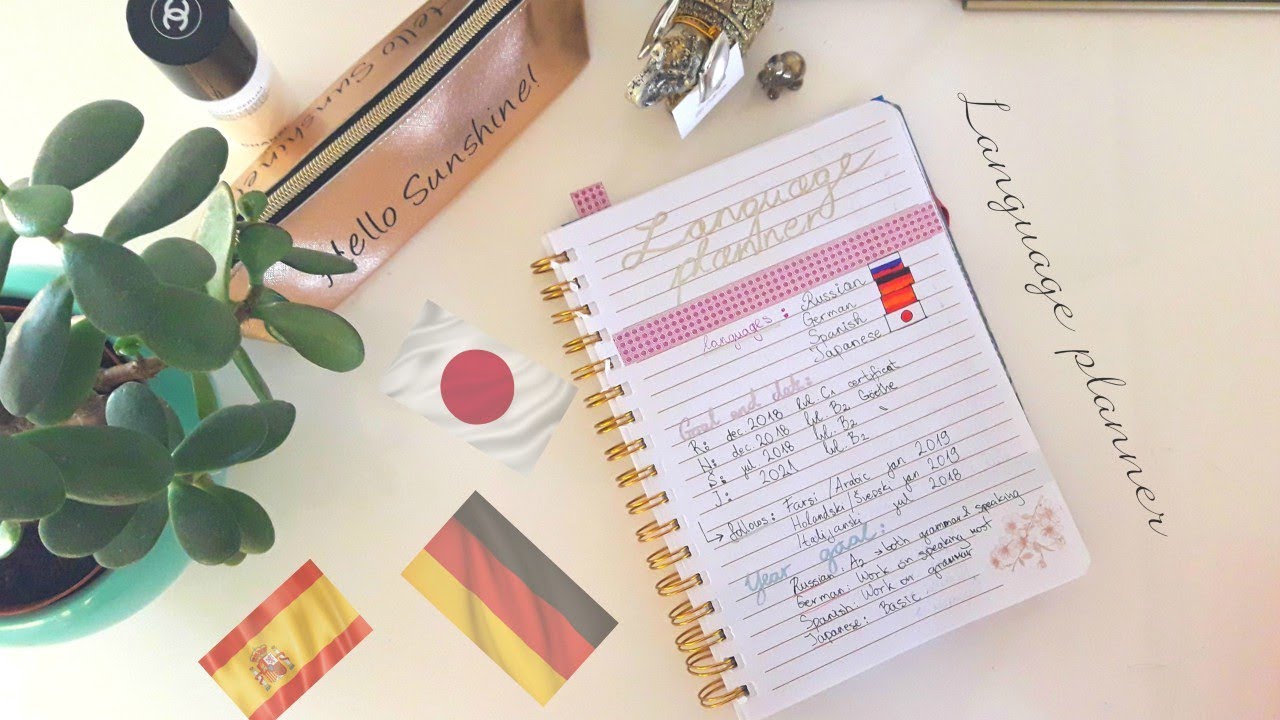 Hello Sunshine!
Hello Sunshine
Language planner
Language
planner
Languages: Russian
German
Spanish
Japanese
Goal end date:
R: dec 2018 lvl C1 certificat
N: dec 2018 lvl B2 Goethe
S: jul 2018 lvl. B2
J: 2021 lvl. B2
Farsi/Arabic jan 2019
Holandski/Švedski jan 2019
Italijanski jul 2018
Year goal:
Russian: A2 → both grammar & speaking
German: Work on speaking not
Spanish: Work on grammar
Japanese: Basic